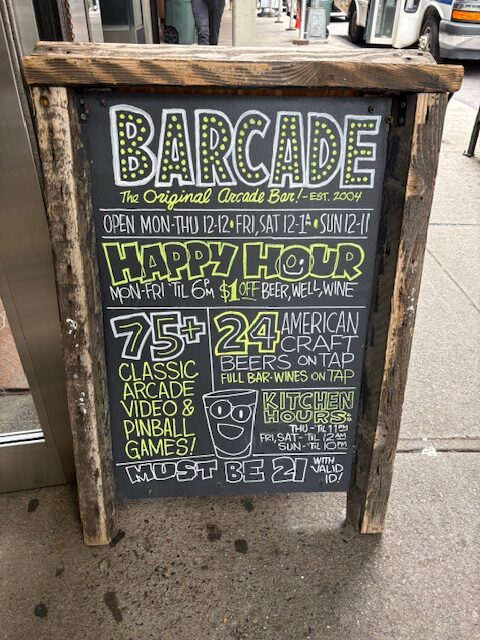 BARCADE
The Original Arcade Bar! - EST. 2004
OPEN MON-THU 12-12 • FRI, SAT 12-1A • SUN 12-11
HAPPY HOUR
MON-FRI 'TIL 6PM $1 OFF BEER, WELL, WINE
75+
CLASSIC
ARCADE
VIDEO &
PINBALL
GAMES!
24 AMERICAN
CRAFT
BEERS ON TAP
FULL BAR - WINES ON TAP
KITCHEN
HOURS:
THU - 'TIL 11PM
FRI, SAT - 'TIL 12AM
SUN - 'TIL 10PM
MUST BE 21 WITH VALID ID!